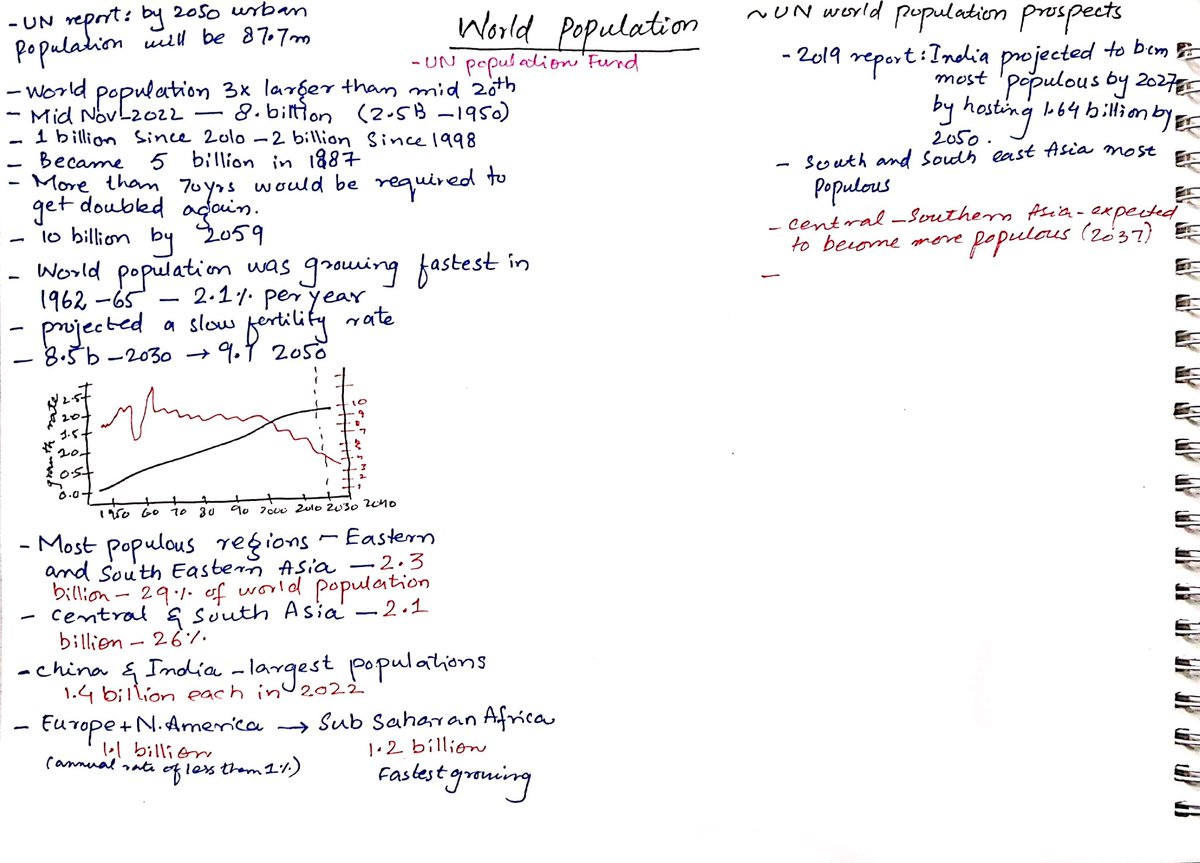 World Population
- UN population Fund
- UN report: by 2050 urban
population will be 87.7m
- World population 3x larger than mid 20th
- Mid Nov-2022 — 8. billion (2.5B - 1950)
- 1 billion since 2010 - 2 billion since 1998
- Became 5 billion in 1887
- More than 70yrs would be required to
get doubled again.
- 10 billion by 2059
- World population was growing fastest in
1962-65 — 2.1% per year
- projected a slow fertility rate
- 8.5b - 2030 → 9.7 2050
growth rate
2.5
2.0
1.5
2.0
0.5
0.0
10
9
8
7
3
2
1
1950 60 70 80 90 2000 2010 2030 2040
- Most populous regions - Eastern
and South Eastern Asia - 2.3
billion - 29% of world population
- Central & South Asia - 2.1
billion - 26%
- China & India - largest populations
1.4 billion each in 2022
- Europe + N. America → Sub Saharan Africa
1.1 billion 1.2 billion
(annual rate of less than 1%) Fastest growing
~ UN world population prospects
- 2019 report: India projected to bcm
most populous by 2027
by hosting 1.64 billion by
2050.
- South and South east Asia most
populous
- Central - Southern Asia - expected
to become more populous (2037)
-